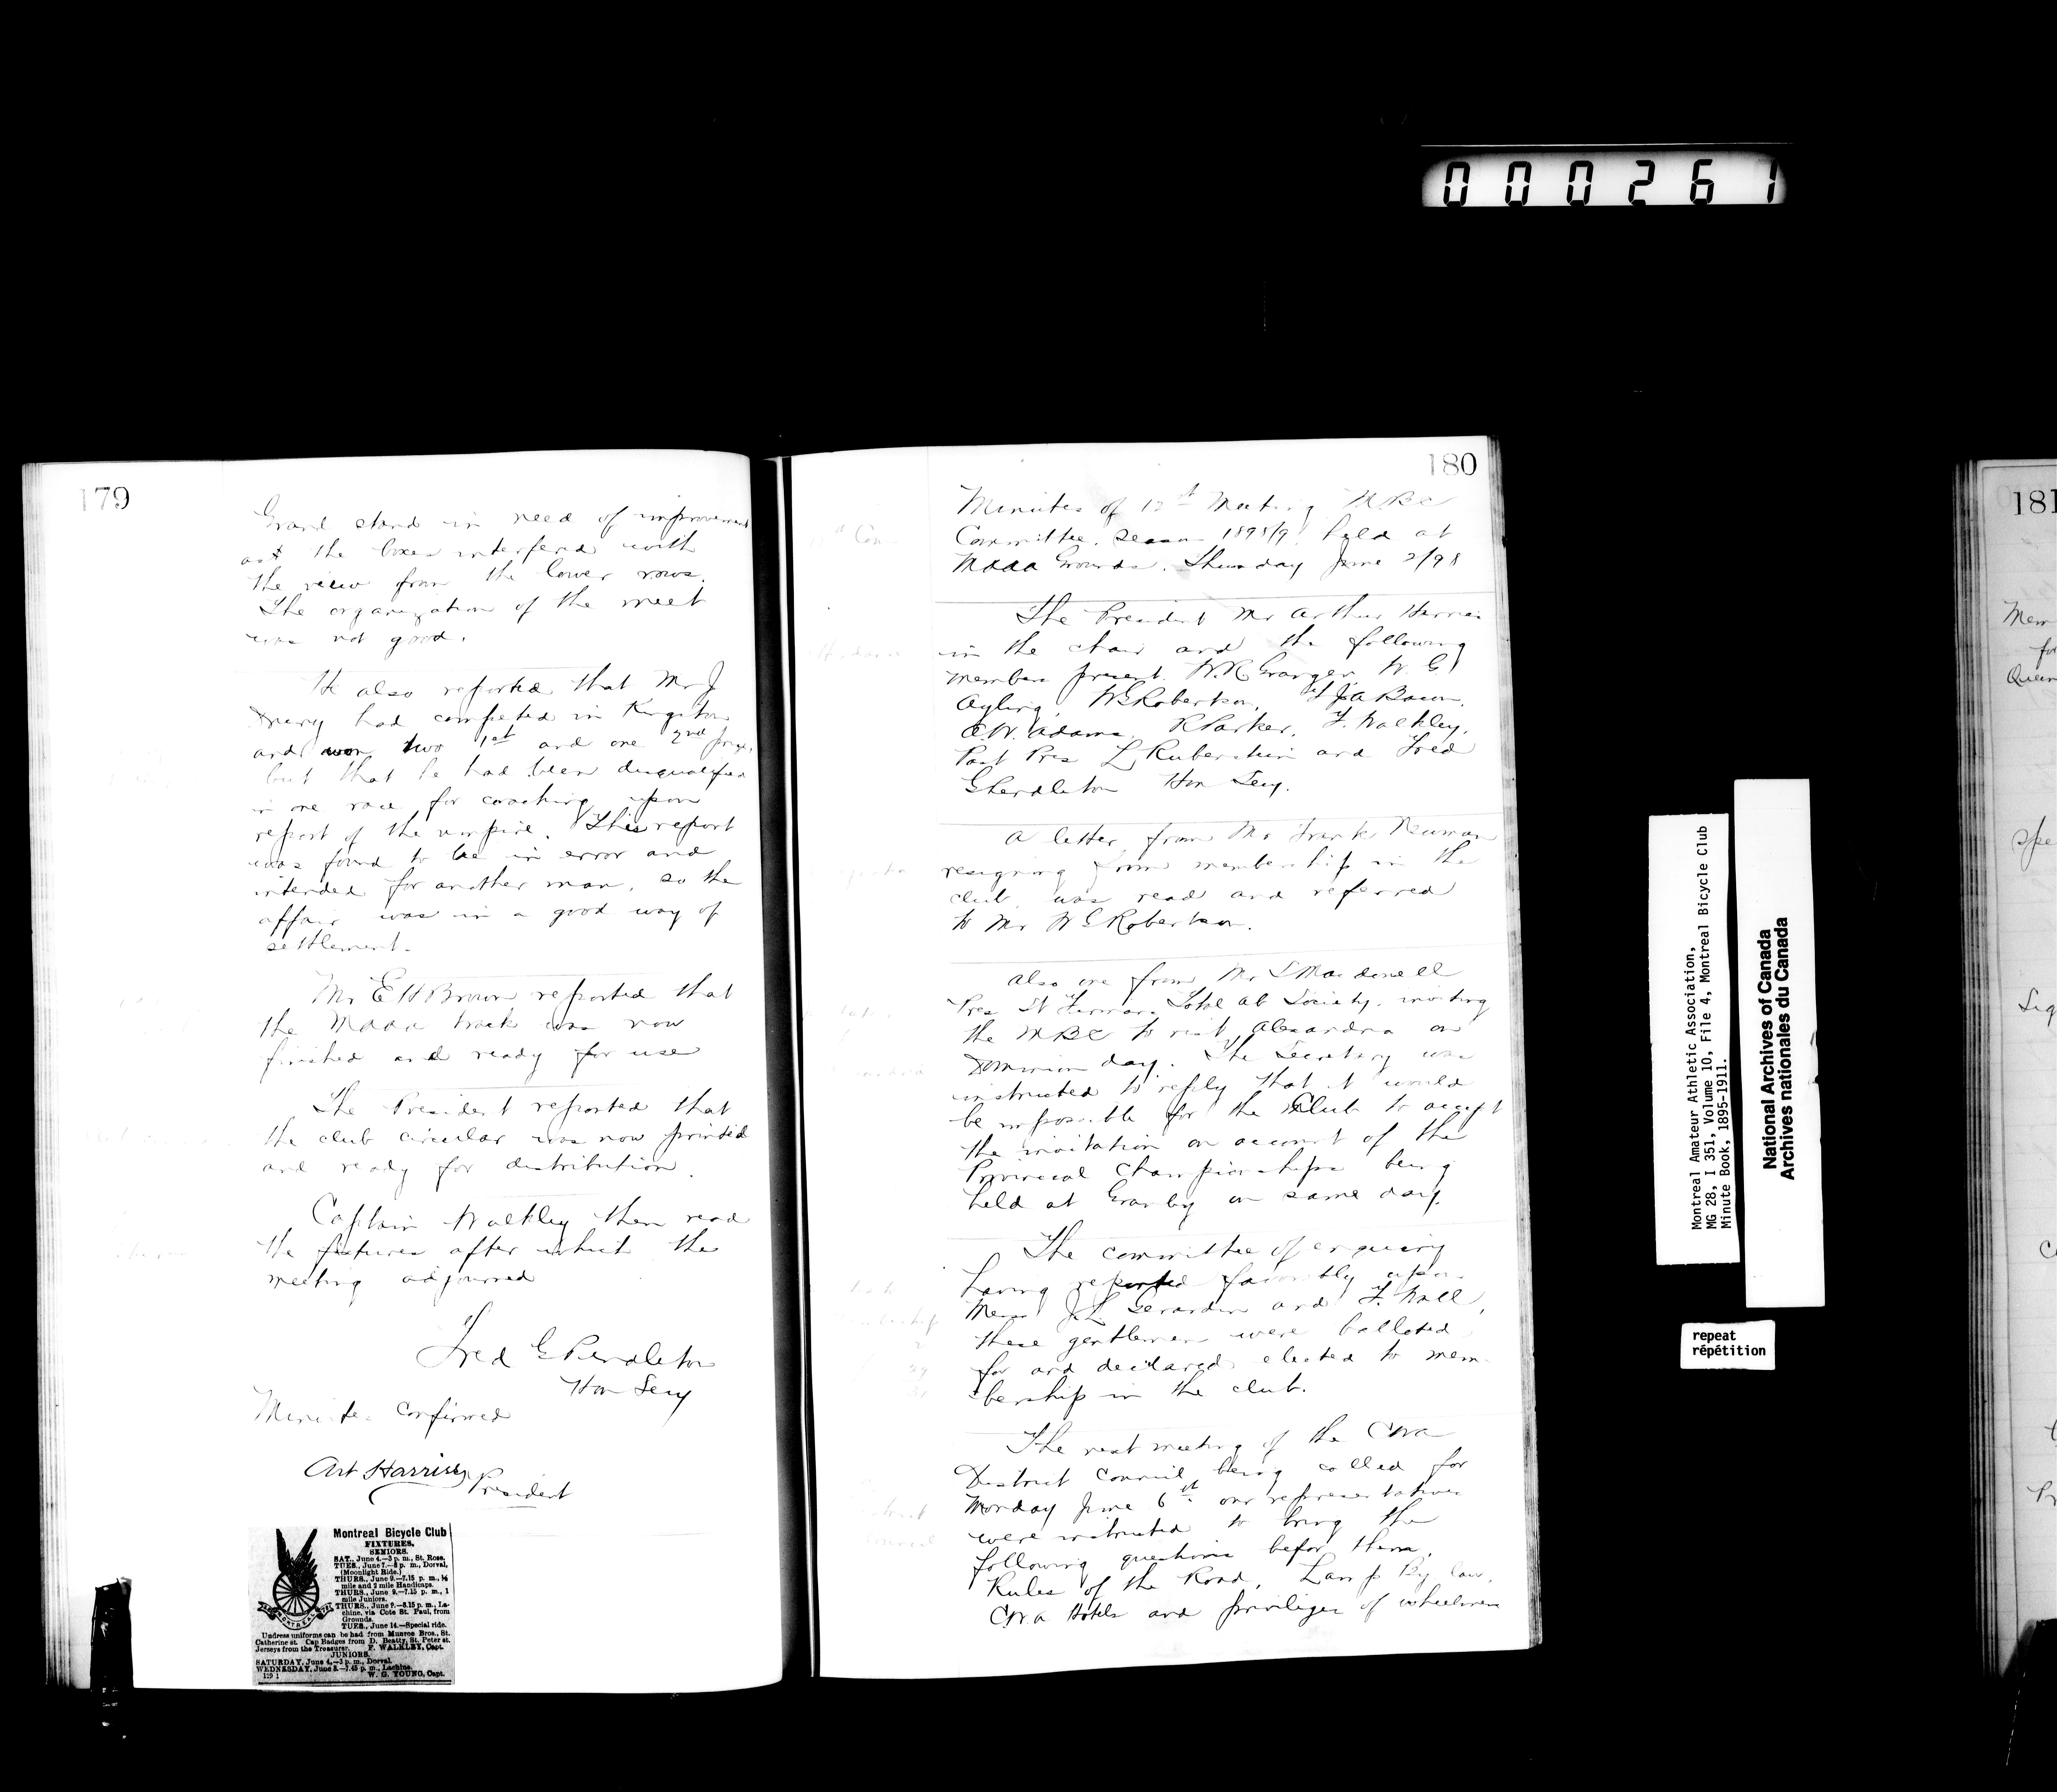 000261
179
Grand stand in need of improvement
as the boxes interfered with
the view from the lower rows.
The organization of the meet
was not good.
He also reported that Mr J
Drury had competed in Kingston
and won two 1st and one 2nd prize,
but that he had been disqualified
in one race for coaching upon
report of the umpire. This report
was found to be in error and
intended for another man, so the
affair was in a good way of
settlement.
Mr E H Brown reported that
the MAAA track was now
finished and ready for use
The President reported that
the club circular was now printed
and ready for distribution.
Captain Walkley then read
the fixtures after which the
meeting adjourned
Fred G Pendleton
Hon Secy
Minutes Confirmed
Art Harriss
President
Montreal Bicycle Club
FIXTURES.
SENIORS.
SAT., June 4.—3 p. m., St. Rose.
TUES., June 7.—8 p. m., Dorval,
(Moonlight Ride.)
THURS., June 9.—7.15 p. m., ½
mile and 2 mile Handicaps.
THURS., June 9.—7.15 p. m., 1
mile Juniors.
THURS., June 9.—8.15 p. m., La-
chine, via Cote St. Paul, from
Grounds.
TUES., June 14.—Special ride.
Undress uniforms can be had from Munroe Bros., St.
Catherine st. Cap Badges from D. Beatty, St. Peter st.
Jerseys from the Treasurer. F. WALKLEY, Capt.
JUNIORS.
SATURDAY, June 4.—3 p. m., Dorval.
WEDNESDAY, June 8.—7.45 p. m., Lachine.
129 1 W. G. YOUNG, Capt.
180
Minutes of 12th Meeting MBC
Committee, season 1898/9, held at
MAAA Grounds. Thursday June 2/98
The President Mr Arthur Harries
in the chair and the following
members present. W.R. Granger, W. G.
Ayling, WGRobertson, J.A Bacon,
A.W. Adams, R Parker, F. Walkley,
Past Pres L Rubenstein and Fred
G Pendleton Hon Secy.
A letter from Mr Frank Newman
resigning from membership in the
club, was read and referred
to Mr W G Robertson.
Also one from Mr Macdonell
Pres St Total Ab Society, inviting
the MBC to visit Alexandria on
Dominion day. The Secretary was
instructed to reply that it would
be impossible for the Club to accept
the invitation on account of the
Provincial Championships being
held at Granby on same day.
The committee of enquiry
having reported favorably upon
Messrs J.L. Gerardin and F. Wall,
these gentlemen were balloted
for and declared elected to mem-
bership in the club.
The next meeting of the CWA
District Council being called for
Monday June 6th our representatives
were instructed to bring the
following questions before them.
Rules of the Road, Lamp By law,
CWA Hotels and privileges of wheelmen
Montreal Amateur Athletic Association,
MG 28, I 351, Volume 10, File 4, Montreal Bicycle Club
Minute Book, 1895-1911.
National Archives of Canada
Archives nationales du Canada
repeat
répétition
181